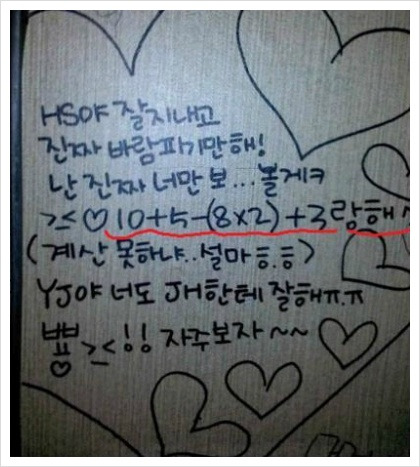 HS야 잘지내고
진짜 바람피기만해!
난 진짜 너만 보...볼게ㅋ
><♡10+5-(8×2)+3랑해~
(계산 못하냐..설마ㅎ.ㅎ)
YJ야 너도 JH한테 잘해ㅠ.ㅠ
뿅><!! 자주보자~~